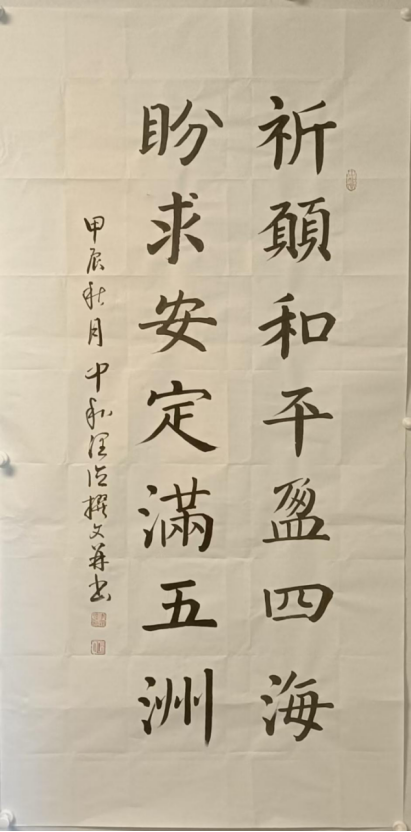 祈願和平盈四海
盼求安定滿五洲
甲辰秋月中和 撰文并书